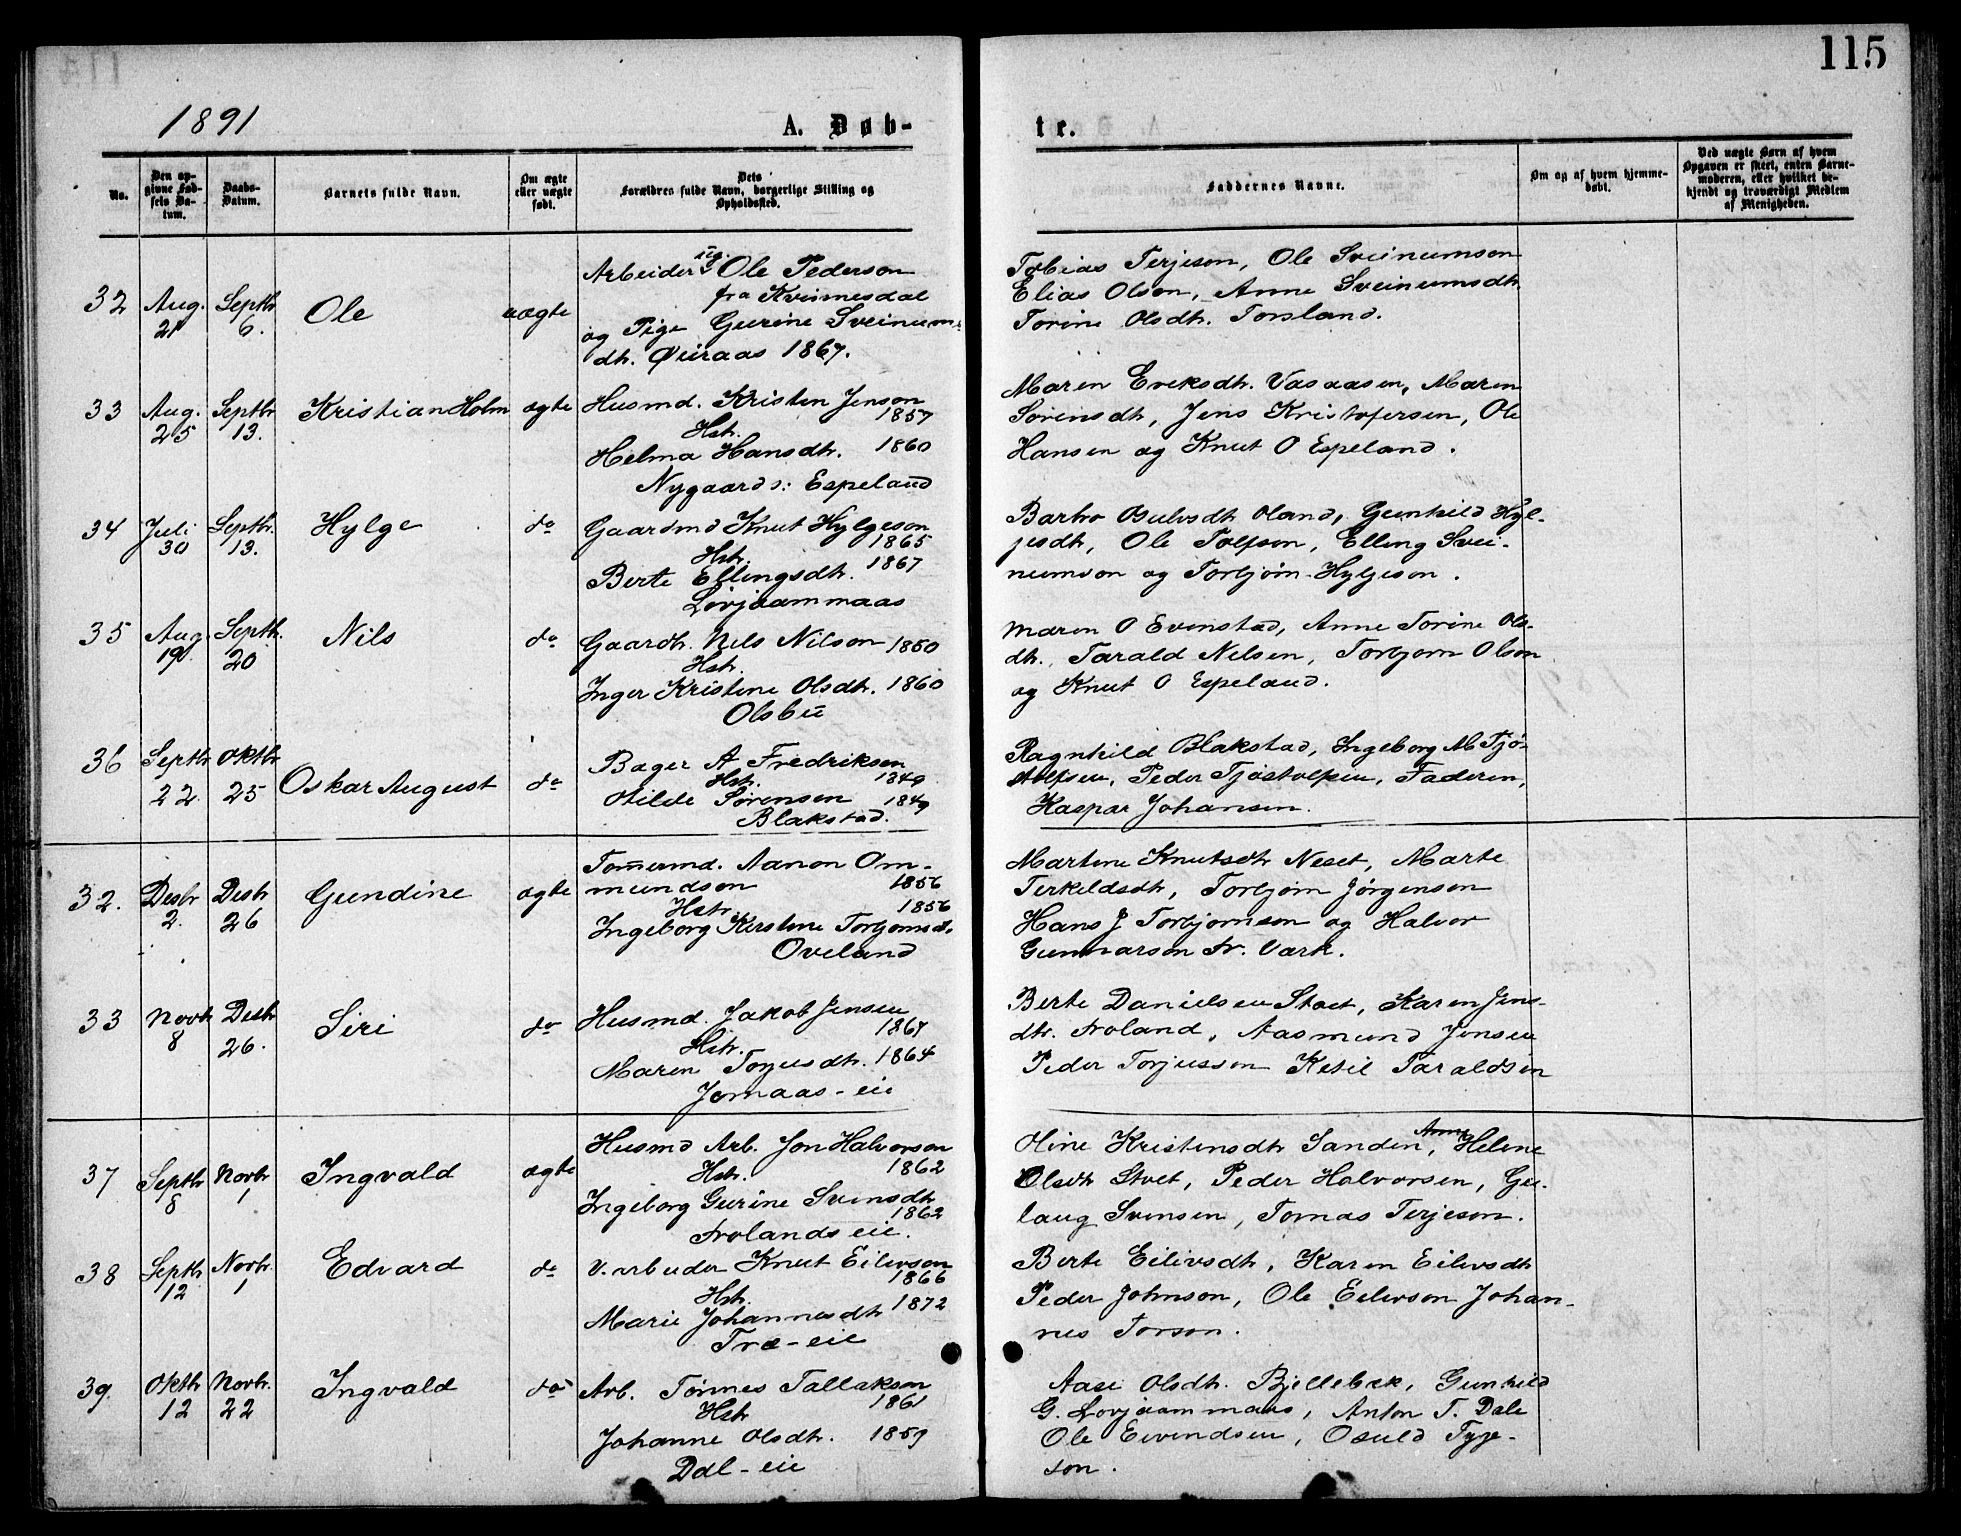 115
1891
A. Døb-
te.
No.
Den op-
givne Fød-
sels Da-
tum.
Daabs-
Datum.
Barnets fulde Navn.
Om ægte
eller uægte
født.
Dets
Forældres fulde Navn, borgerlige Stilling og
Opholdssted.
Faddernes Navne.
Om og af hvem hjemme-
døbt.
Ved uægte Børn af hvem
Opgaven er skeet, enten Barne-
moderen, eller hvilket be-
kjendt og troværdigt Medlem
af Menigheden.
32 Aug. 21 Septbr 6. Ole uægte
Arbeider ug. Ole Pederson
fra Kvinnesdal
og Pige Gurine Sveinums-
dt. Øiraas 1867.
Tobias Terjeson, Ole Sveinumson
Elias Olson, Anne Sveinumsdt.
Torine Olsdt. Torsland.
33 Aug. 25 Septbr 13. Kristian Holm ægte
Husmd. Kristen Jenson
1857
Hst.
Helma Hansdt. 1860
Nygaard s: Espeland
Maren Eriksdt. Vasaasen, Maren
Sørensdt, Jens Kristofersen, Ole
Hansen og Knut O Espeland.
34 Juli 30 Septbr. 13. Hylge do
Gaardmd Knut Hylgeson
1865
Hst. 1867
Berte Ellingsdt.
Løvjaammaas
Barbro Osulvsdt Oland, Gunhild Hyl-
jesdt, Ole Tolfson, Elling Svei-
numson og Torbjørn Hylgeson.
35 Aug 19 Septbr. 20 Nils do
Gaardbr. Nils Nilson 1850
Hst.
Inger Kristine Olsdt. 1860
Olsbu
Maren O Evenstad, Anne Torine Ols-
dt., Tarald Nilsen, Torbjørn Olson
og Knut O Espeland.
36 Septbr 22. Oktbr 25 Oskar August do
Bager A Fredriksen
Hst. 1849
Otilde Sørensen 1849
Blakstad.
Ragnhild Blakstad, Ingeborg M Tjø-
stolfsen, Peder Tjøstolfsen, Faderen,
Kaspar Johansen.
32. Desbr 2. Desbr 26 Gundine ægte
Tømermd. Aanon Om-
mundson 1856
Hst. 1856
Ingeborg Kirstine Torbjornsdt.
Oveland
Martine Knutsdt Neset, Marte
Terkildsdt, Torbjørn Jørgenson
Hans J Torbjornson og Halvor
Gunnarson Fr. Værk.
33 Novbr 8 Desbr 26. Siri do
Husmd. Jakob Jensen
1867
Hst.
Maren Torjusdt. 1864
Jomaas-eie
Berte Danielsen Stoet, Karen Jens-
dt. Froland, Aasmund Jensen
Peder Torjusson Ketil Taraldsen
37 Septbr 8 Novbr 1 Ingvald ægte
Husmd Arb. Jon Halvorson
Hst. 1862
Ingeborg Gurine Svensdt
1862
Frolands eie.
Oline Kristensdt Sanden, Anne Helene
Olsdt Stoet, Peder Halvorsen, Gu-
laug Svensen, Tomas Terjeson.
38 Septbr 12 Novbr. 1 Edvard do
V. arbeider Knut Eilevson
1866
Hst. 1872
Marie Johannesdt
Træ-eie
Berte Eilivsdt, Karen Eilevsdt
Peder Johnson, Ole Eilevson Johan-
nes Torson.
39. Oktbr 12 Novbr. 22 Ingvald do
Arb. Tønnes Tallakson
1861
Hst
Johanne Olsdt. 1859
Dal-eie
Aase Olsdt. Bjellebæk, Gunhild
G. Lovjaammaas, Anton T. Dale
Ole Eivendsen, Osuld Tyge-
son.